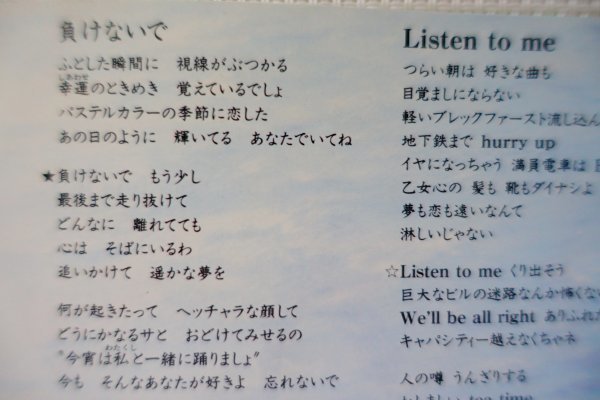 負けないで
ふとした瞬間に 視線がぶつかる
幸運のときめき 覚えているでしょ
パステルカラーの季節に恋した
あの日のように 輝いてる あなたでいてね
★負けないで もう少し
最後まで走り抜けて
どんなに 離れてても
心は そばにいるわ
追いかけて 遥かな夢を
何が起きたって ヘッチャラな顔して
どうにかなるサと おどけてみせるの
"今宵は私と一緒に踊りましょ"
今も そんなあなたが好きよ 忘れないで
Listen to me
つらい朝は 好きな曲も
目覚ましにならない
軽いブレックファースト流し込ん
地下鉄まで hurry up
イヤになっちゃう 満員電車は
乙女心の 髪も 靴もダイナシよ
夢も恋も遠いなんて
淋しいじゃない
☆Listen to me くり出そう
巨大なビルの迷路なんか怖くな
We'll be all right ありふれた
キャパシティー越えなくちゃネ
人の噂 うんざりする
tea time